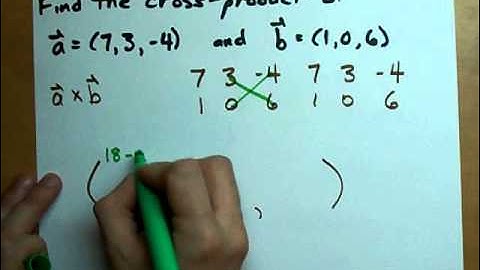 Find the cross-product of
a⃗ = (7, 3, -4) and b⃗ = (1, 0, 6)
a⃗ x b⃗ 7 3 -4 7 3 -4
1 0 6 1 0 6
( 18 - , )